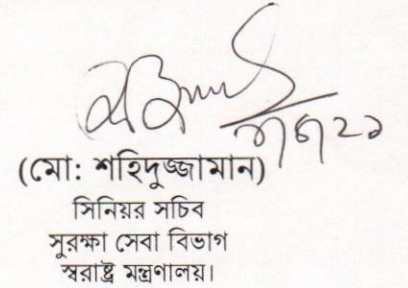 (মো: শহিদুজ্জামান)
সিনিয়র সচিব
সুরক্ষা সেবা বিভাগ
স্বরাষ্ট্র মন্ত্রণালয়।